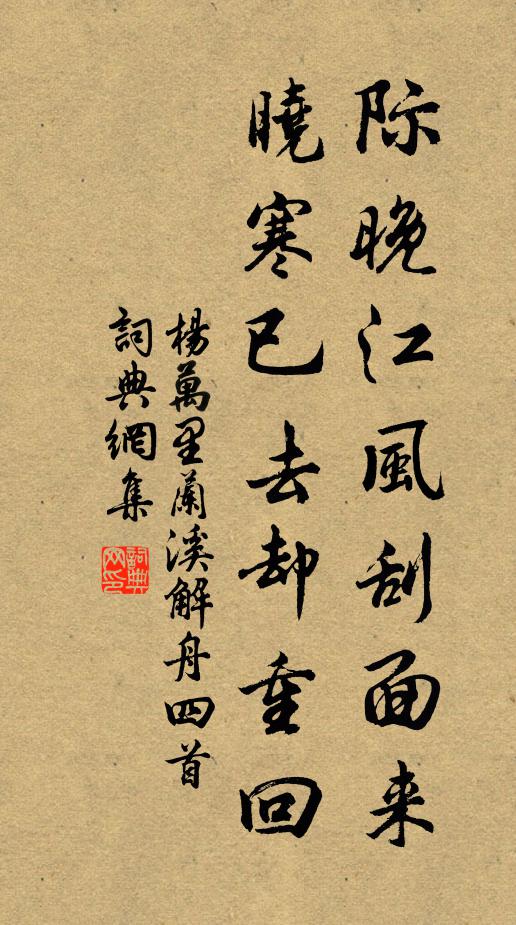 际晚江風刮面来
曉寒已去却重回
楊萬里蘭溪解舟四首
詞典網集
詞典網印